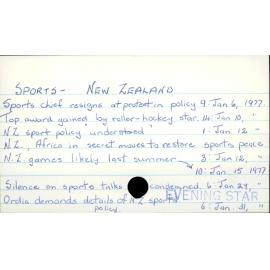 SPORTS - NEW ZEALAND
Sports chief resigns at protest in policy 9. Jan 6, 1977.
Top award gained by roller-hockey star. 14. Jan 10, "
N.Z. sport policy 'understood' 1. Jan 12, "
N.Z., Africa in secret moves to restore sports peace
N.Z. games likely last summer 3. Jan 12, "
10. Jan 15 1977
Silence on sports talks condemned. 6 Jan 24, "
Ordia demands details of N.Z. sports
policy. 6. Jan. 31, "
EVENING STAR